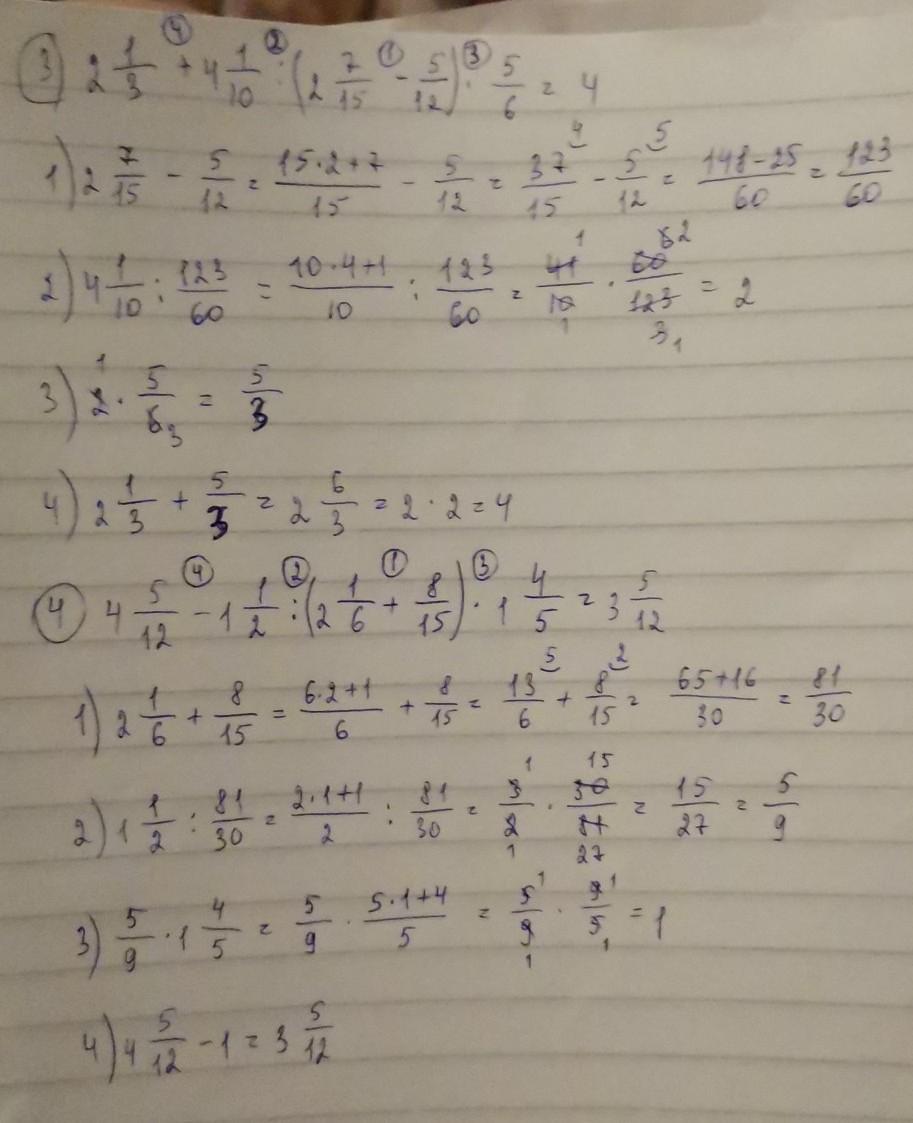 ③ 2 1/3 +④ 4 1/10 :② (2 7/15 -① 5/12) ·③ 5/6 = 4
1) 2 7/15 - 5/12 = (15·2+7)/15 - 5/12 = 37/15 4 - 5/12 5 = (148-25)/60 = 123/60
2) 4 1/10 : 123/60 = (10·4+1)/10 : 123/60 = 41/10 · 60/123 = 2
3) 2 · 5/6 = 5/3
4) 2 1/3 + 5/3 = 2 6/3 = 2·2 = 4
④ 4 5/12 -④ 1 1/2 :② (2 1/6 +① 8/15) ·③ 1 4/5 = 3 5/12
1) 2 1/6 + 8/15 = (6·2+1)/6 + 8/15 = 13/6 5 + 8/15 2 = (65+16)/30 = 81/30
2) 1 1/2 : 81/30 = (2·1+1)/2 : 81/30 = 3/2 · 30/81 = 15/27 = 5/9
3) 5/9 · 1 4/5 = 5/9 · (5·1+4)/5 = 5/9 · 9/5 = 1
4) 4 5/12 - 1 = 3 5/12